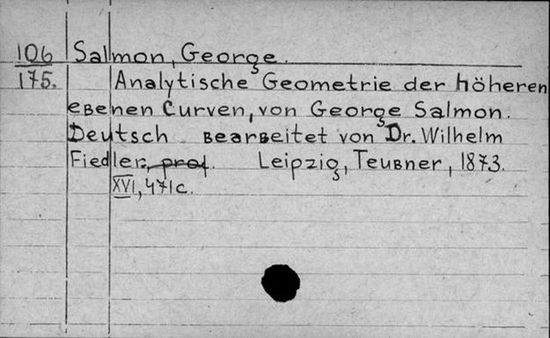 106 Salmon, George.
175. Analytische Geometrie der höheren
ebenen Curven, von George Salmon.
Deutsch bearbeitet von Dr. Wilhelm
Fiedler, prof. Leipzig, Teubner, 1873.
XVI, 471c.